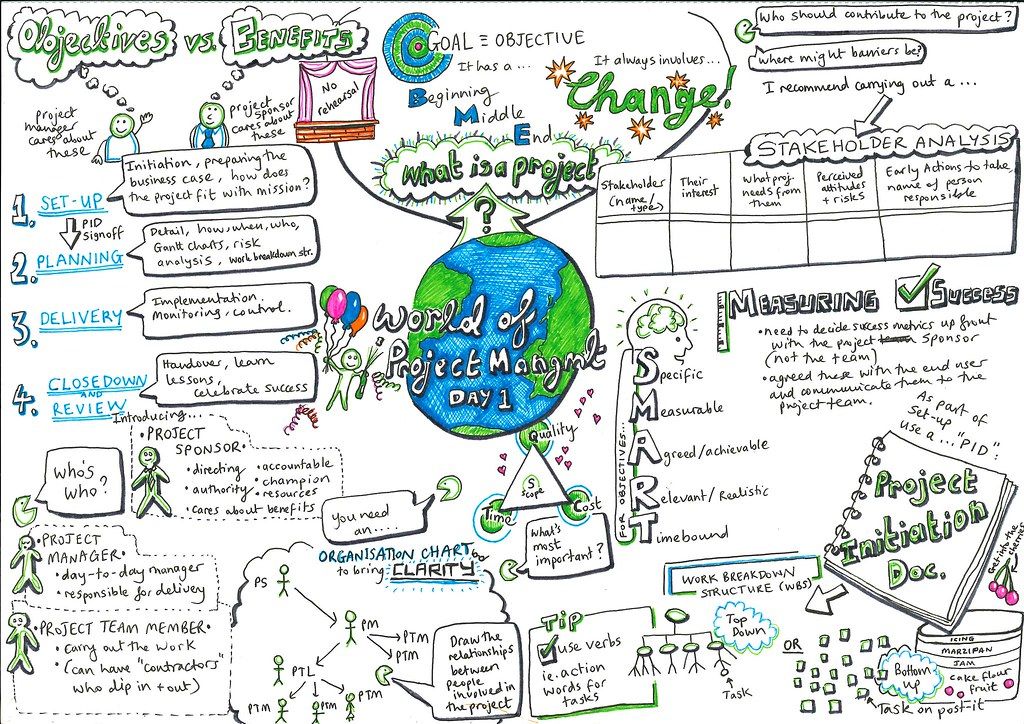 Objectives vs. BENEFITS
project manager cares about these
project sponsor cares about these
No rehearsal
GOAL ≡ OBJECTIVE
It has a ...
Beginning
Middle
End
It always involves...
Change!
what is a project
?
Who should contribute to the project?
where might barriers be?
I recommend carrying out a ...
STAKEHOLDER ANALYSIS
Stakeholder (name/type)
Their interest
What proj. needs from them
Perceived attitudes + risks
Early Actions to take, name of person responsible
1. SET-UP
Initiation, preparing the
business case, how does
the project fit with mission?
PID
signoff
2. PLANNING
Detail, how, when, who,
Gantt charts, risk
analysis, work breakdown str.
3. DELIVERY
Implementation.
Monitoring/control.
4. CLOSEDOWN
AND
REVIEW
Handover, learn
lessons,
celebrate success
World of
Project Mangmt
DAY 1
MEASURING SUCCESS
• need to decide success metrics up front
with the project sponsor
(not the team)
• agreed these with the end user
and communicate them to the
project team.
FOR OBJECTIVES...
Specific
Measurable
Agreed/achievable
Relevant/Realistic
Timebound
As part of
Set-up
use a ... "PID":
Project
Initiation
Doc.
Quality
Scope
Time
Cost
What's
most
important?
Introducing...
WHO'S
WHO?
• PROJECT
SPONSOR •
• directing
• authority
• accountable
• champion
• resources
• cares about benefits
• PROJECT
MANAGER •
• day-to-day manager
• responsible for delivery
• PROJECT TEAM MEMBER •
• carry out the work
• (can have "contractors"
who dip in + out)
You need
an....
ORGANISATION CHART
to bring CLARITY
PS
PM
PTM
PTM
PTL
PTM
PTM
PTM
Draw the
relationships
between
people
involved in
the project
TIP
use verbs
ie. action
words for
tasks
WORK BREAKDOWN
STRUCTURE (WBS)
Top
Down
Task
OR
Bottom
up
Task on post-it
ICING
MARZIPAN
JAM
cake flour
fruit